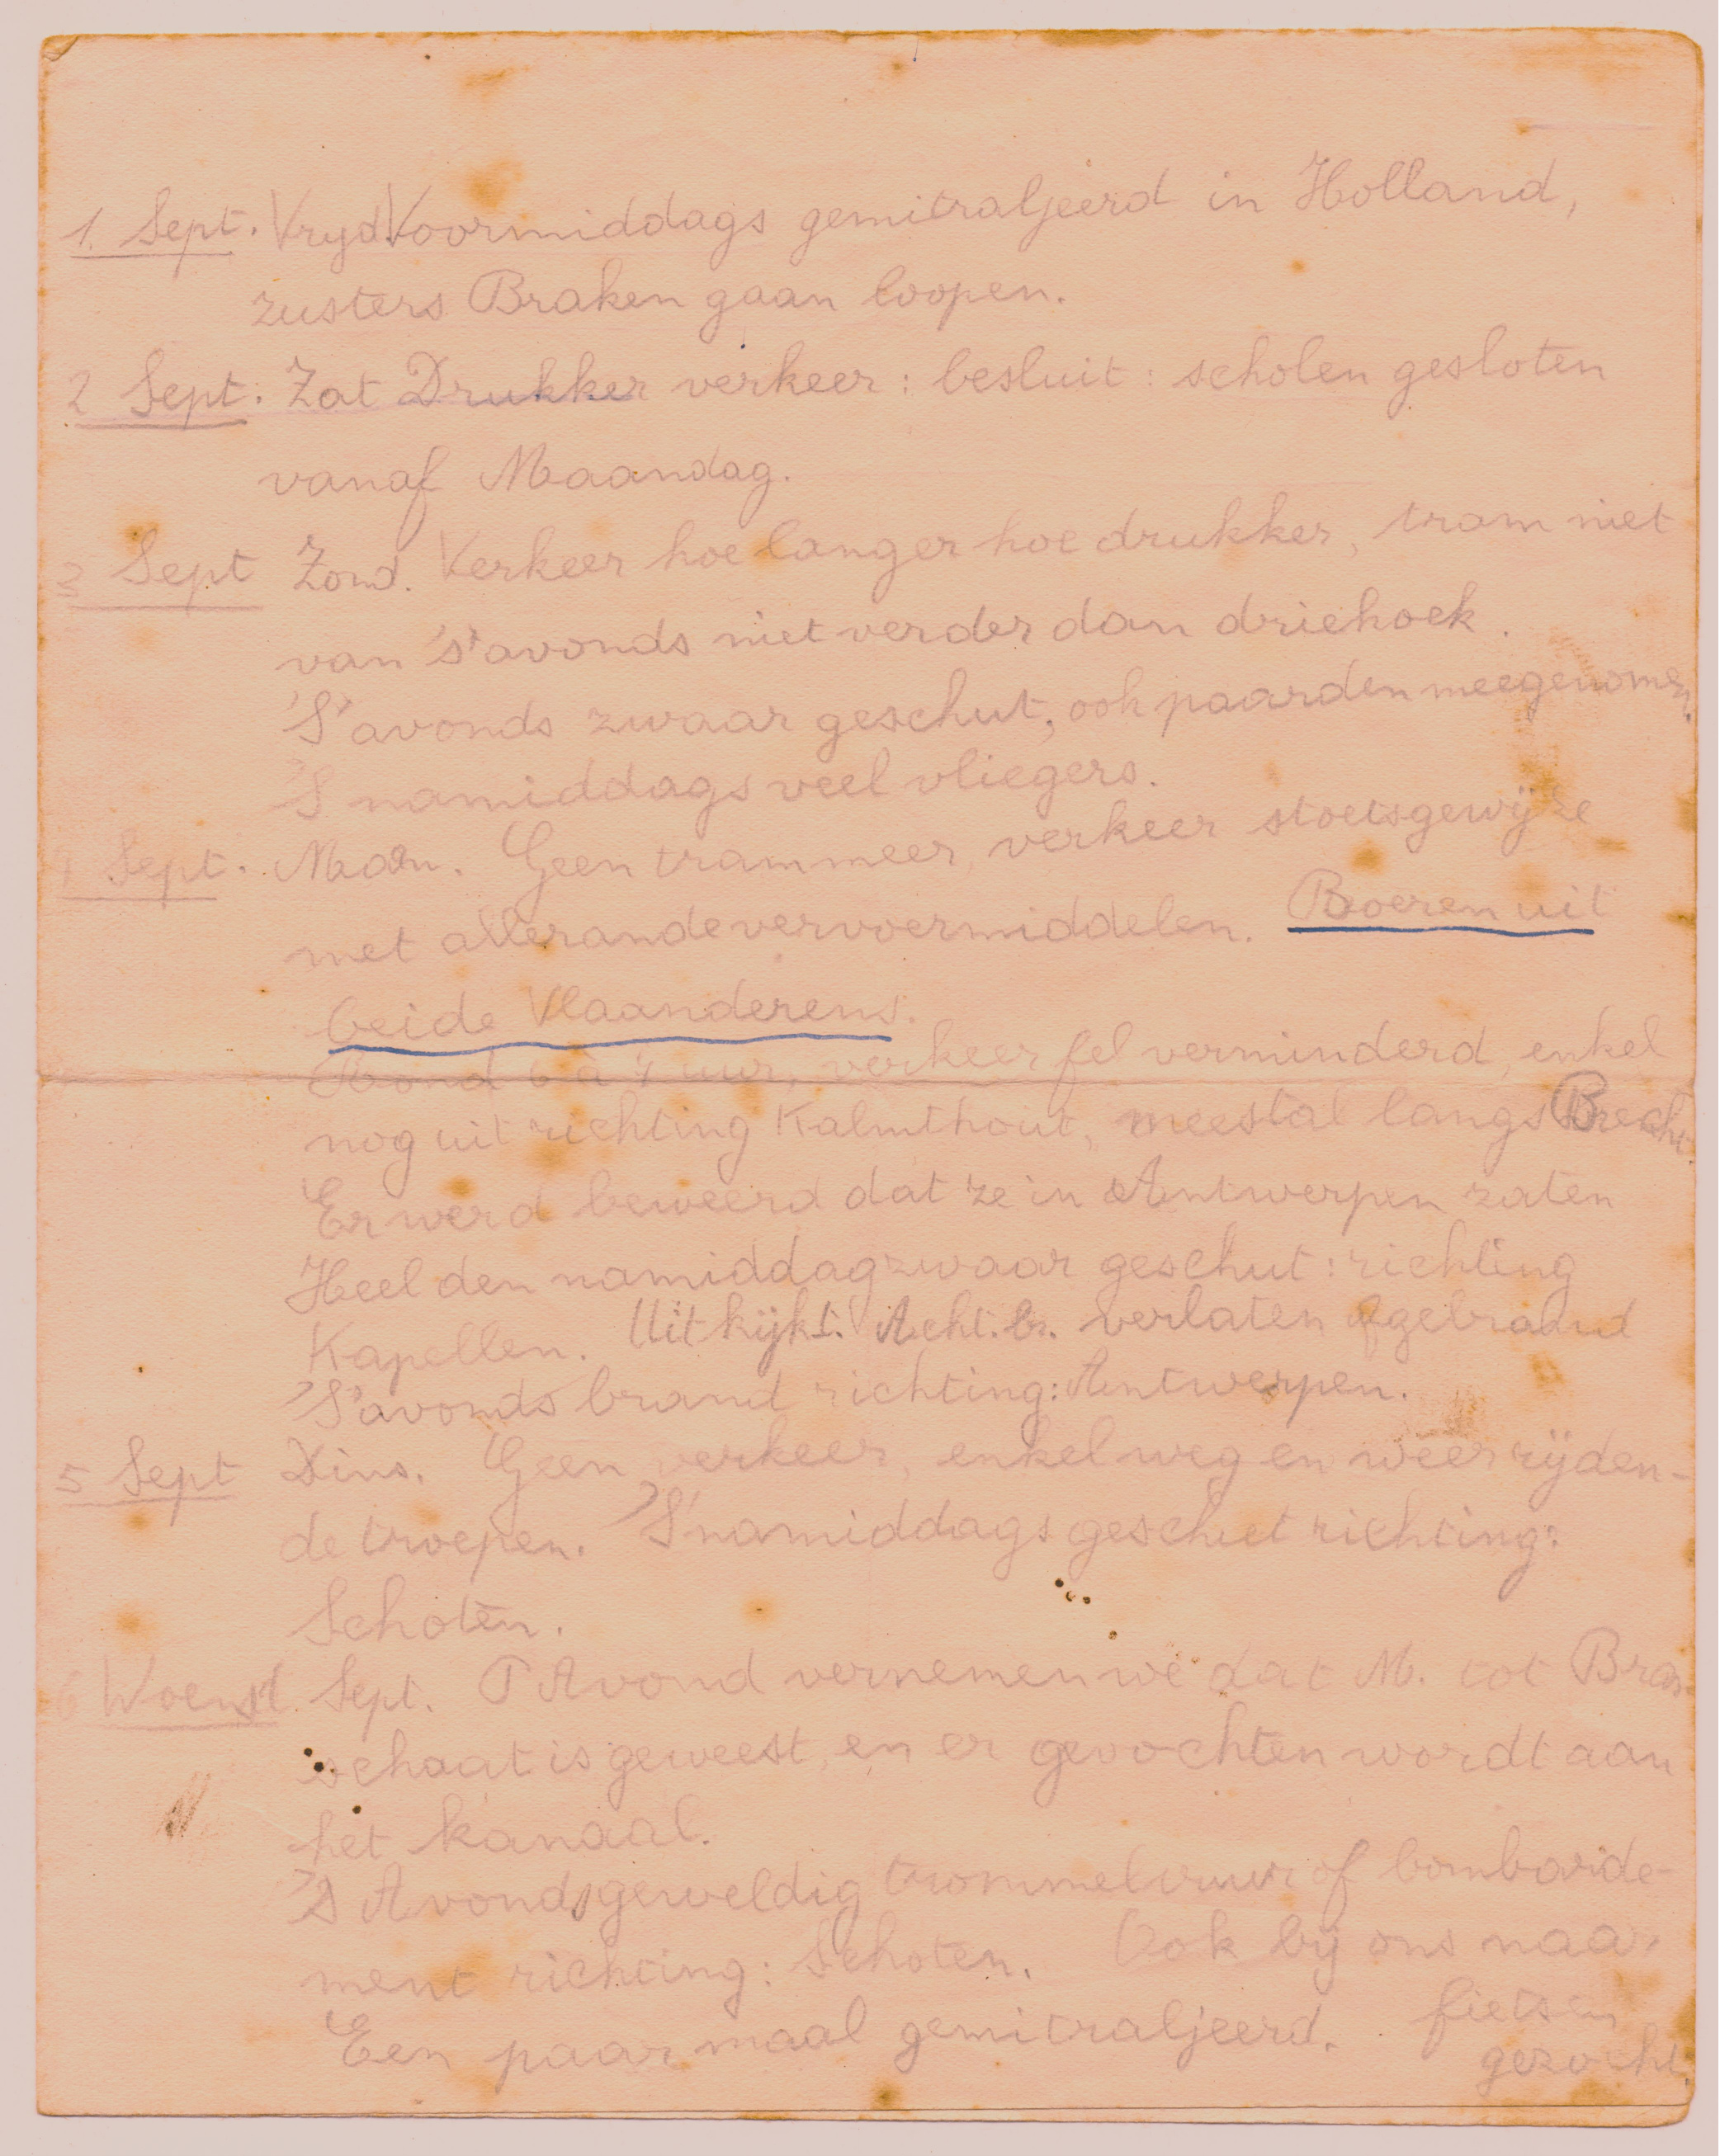 1. Sept. Vryd. Voormiddags gemitraljeerd in Holland,
zusters Braken gaan loopen.
2 Sept. Zat Drukker verkeer: besluit: scholen gesloten
vanaf Maandag.
3 Sept Zond. Verkeer hoe langer hoe drukker, tram niet
van 's' avonds niet verder dan driehoek.
'S' avonds zwaar geschut, ook paarden meegenomen.
'S namiddags veel vliegers.
Sept. Maan. Geen tram meer, verkeer stoetsgewijze
met allerande vervoermiddelen. Boeren uit
beide Vlaanderens.
Rond 6 à 7 uur, verkeer fel verminderd, enkel
nog uit richting Kalmthout, meestal langs Brecht.
Er werd beweerd dat ze in Antwerpen zaten
Heel den namiddag zwaar geschut: richting
Kapellen. Uitkijkt. Acht. br. verlaten afgebrand
'S' avonds brand richting: Antwerpen.
5 Sept Dins. Geen verkeer, enkel weg en weer rijden-
de troepen. 'S' namiddags geschut richting:
Schoten.
6 Woensd. Sept. T Avond vernemen we dat M. tot Bras-
schaat is geweest, en er gevochten wordt aan
het kanaal.
'S Avonds geweldig trommelvuur of bombarde-
ment richting: Schoten. Ook bij ons naar
Een paar maal gemitraljeerd. fietsen
gezocht.